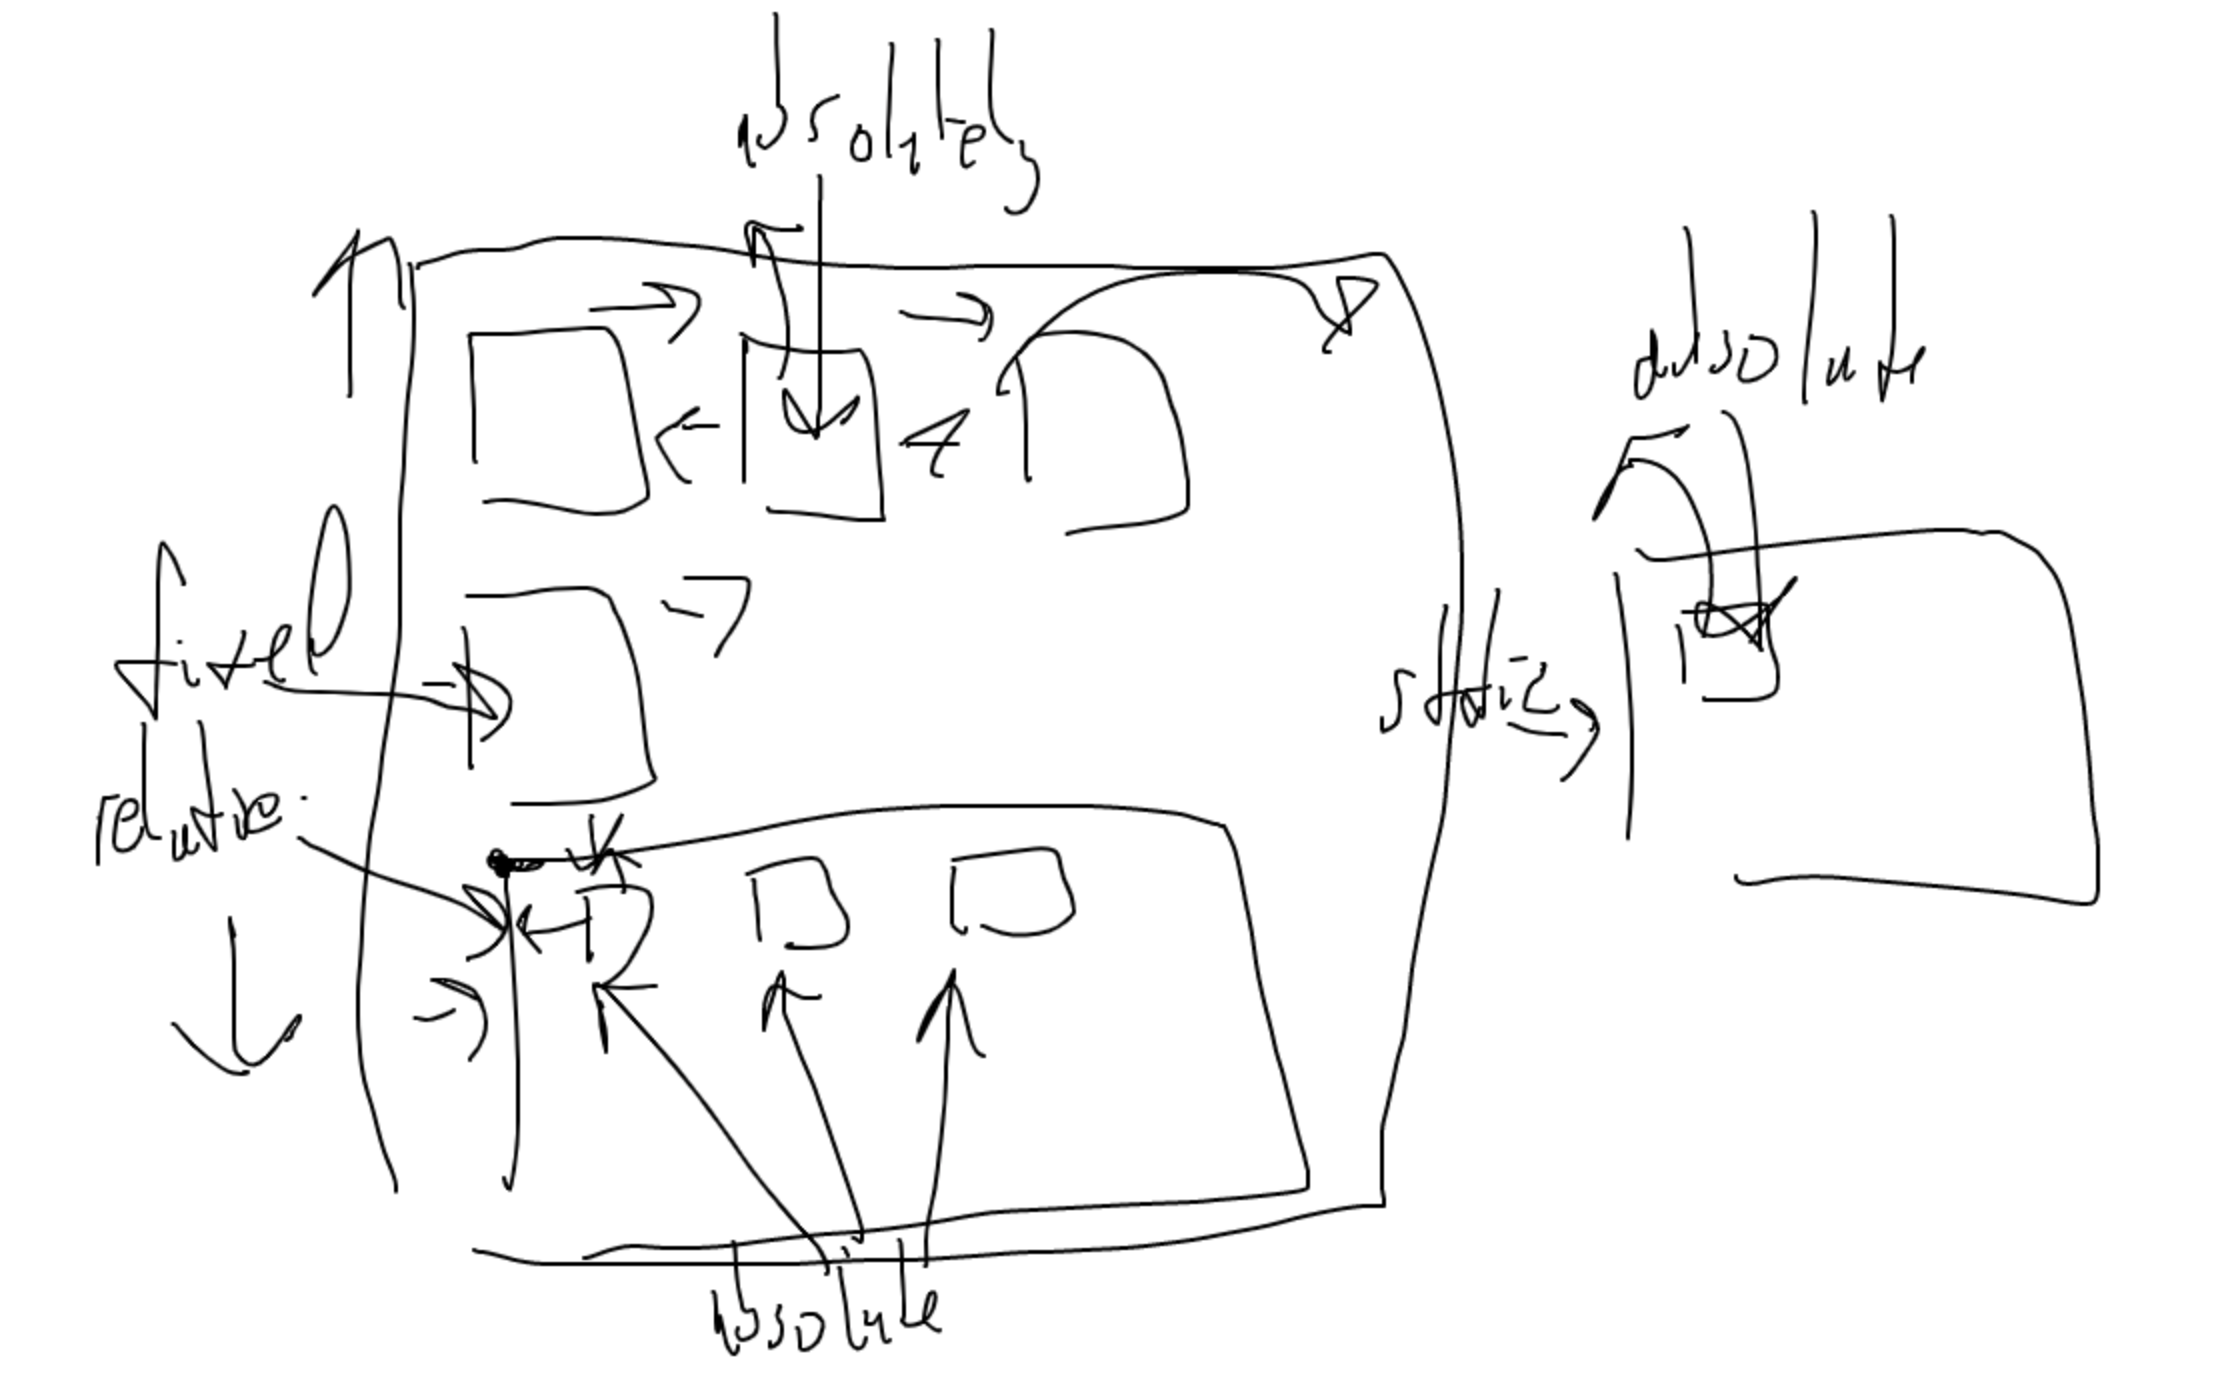 absolutely
absolute
fixed
static
relative
absolute